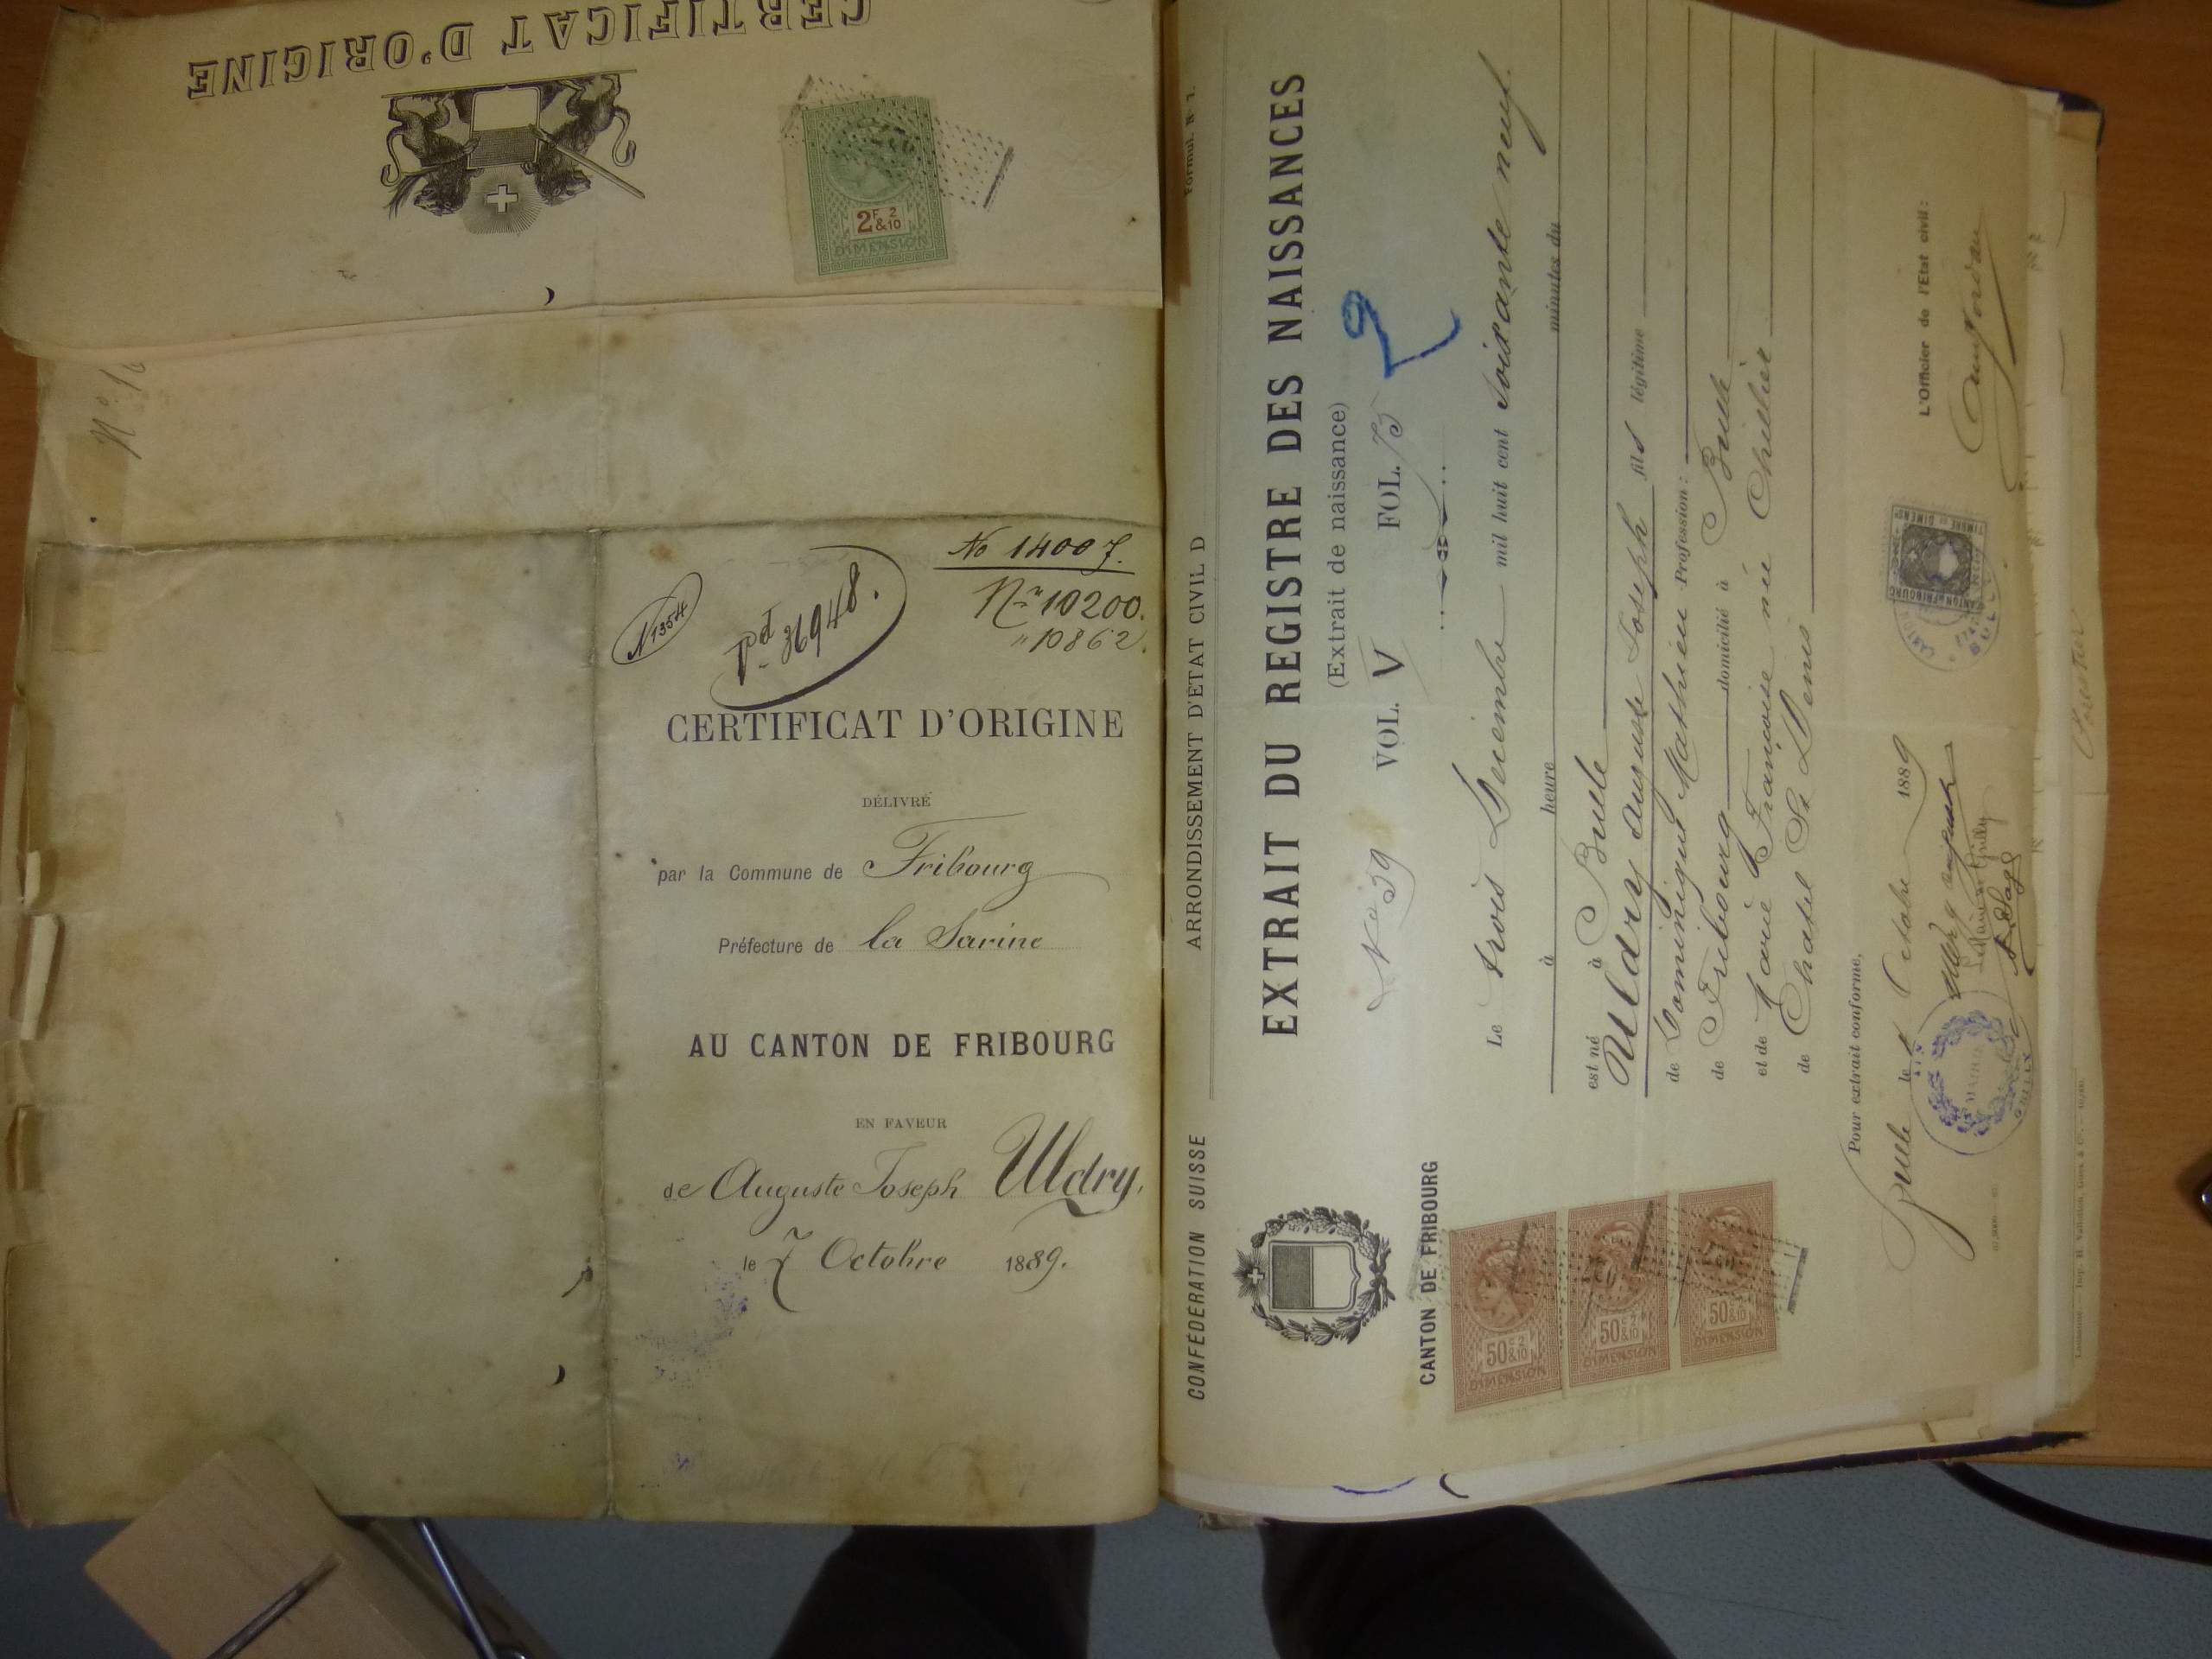 CERTIFICAT D'ORIGINE
2F 2
&10
DIMENSION
No 14007.
N 1354
Pd 36948.
Nro 10200.
" 10862.
CERTIFICAT D'ORIGINE
DÉLIVRÉ
par la Commune de Fribourg
Préfecture de la Sarine
AU CANTON DE FRIBOURG
EN FAVEUR
de Auguste Joseph Uldry.
le 7 Octobre 1889.
Formul. No 1.
CONFÉDÉRATION SUISSE
ARRONDISSEMENT D'ÉTAT CIVIL D
CANTON DE FRIBOURG
EXTRAIT DU REGISTRE DES NAISSANCES
(Extrait de naissance)
No 59 VOL. V FOL. 75
2
Le trois Décembre mil huit cent soixante neuf.
à heure minutes du
est né à Bulle
Uldry Auguste Joseph fils légitime
de Dominique Mathieu Profession:
de Fribourg domicilié à Bulle
et de Marie Françoise née Chillier
de Chatel St Denis
Pour extrait conforme,
Bulle le Octobre 1889
L'Officier de l'État civil:
CANTON DE FRIBOURG
TIMBRE DE DIMENS
50c 2
&10
DIMENSION
50c 2
&10
DIMENSION
50c 2
&10
DIMENSION